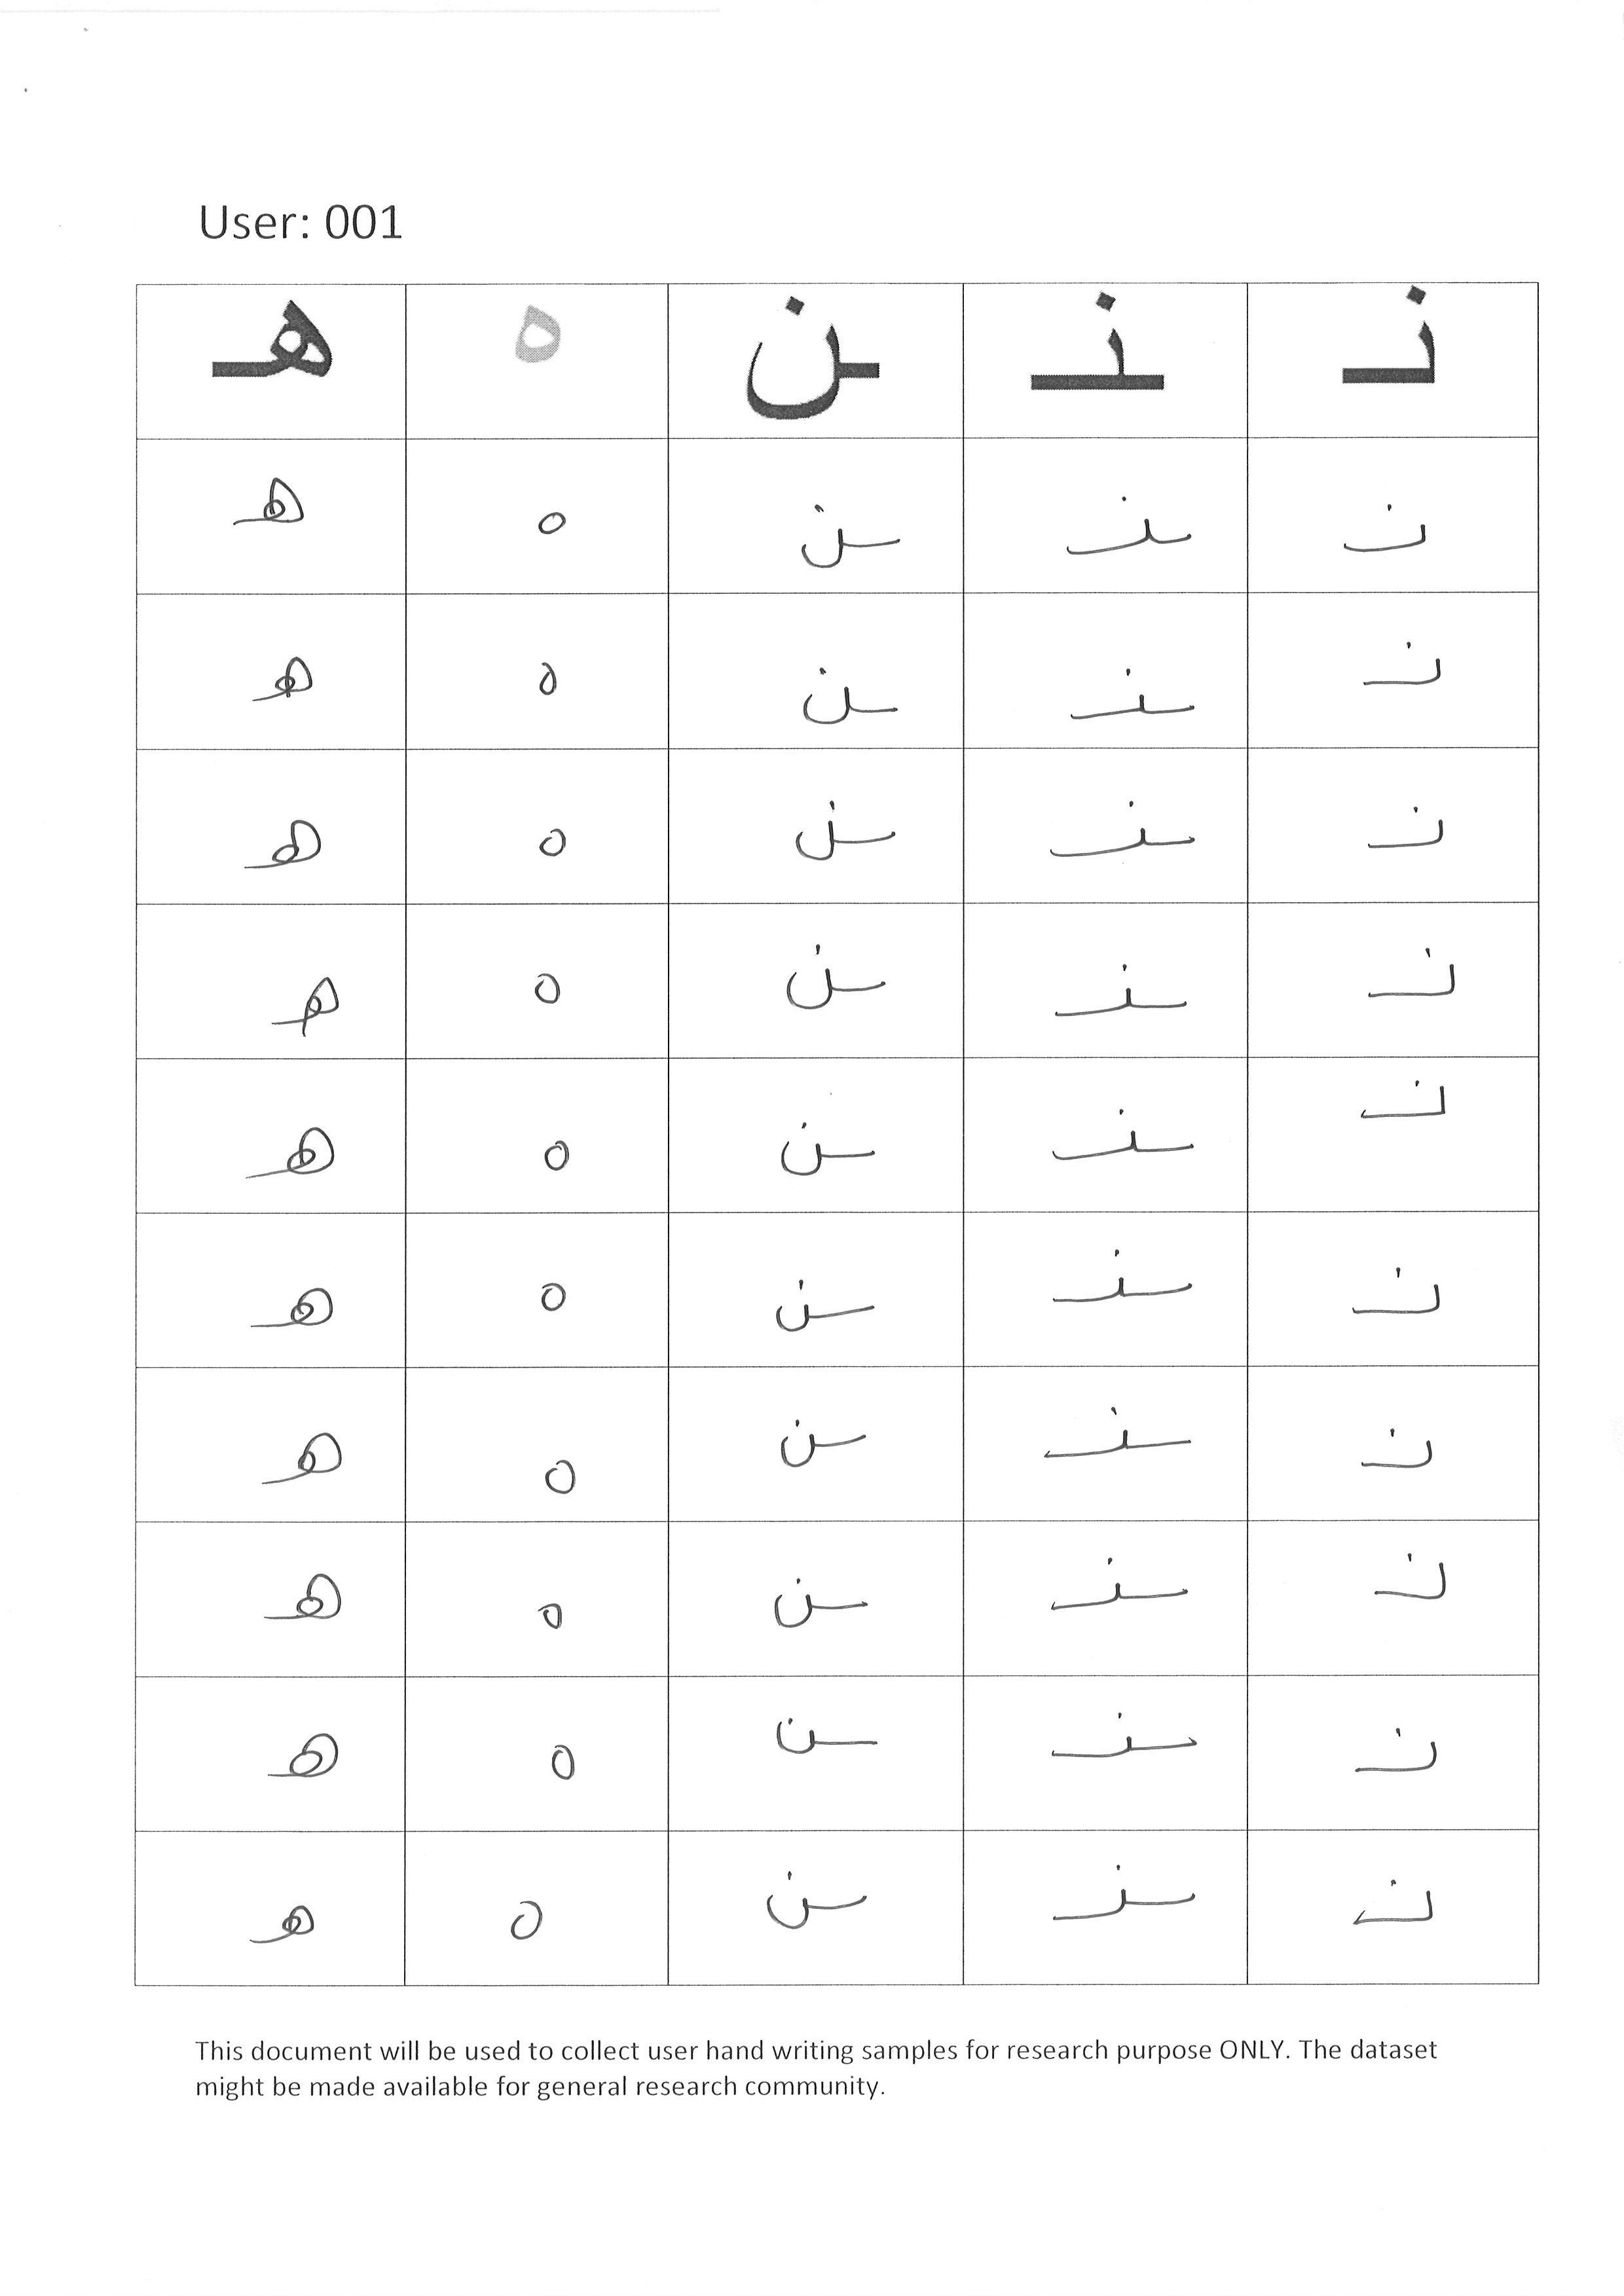 User: 001
نـ ـنـ ـن ه هـ
نـ ـنـ ـن ه هـ
نـ ـنـ ـن ه هـ
نـ ـنـ ـن ه هـ
نـ ـنـ ـن ه هـ
نـ ـنـ ـن ه هـ
نـ ـنـ ـن ه هـ
نـ ـنـ ـن ه هـ
نـ ـنـ ـن ه هـ
نـ ـنـ ـن ه هـ
نـ ـنـ ـن ه هـ
This document will be used to collect user hand writing samples for research purpose ONLY. The dataset
might be made available for general research community.